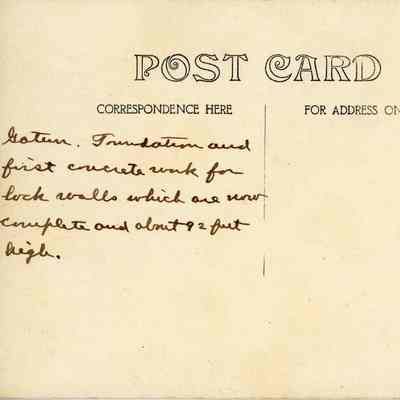 POST CARD
CORRESPONDENCE HERE
FOR ADDRESS ON
Gatun. Foundation and
first concrete work for
lock walls which are now
complete and about 92 feet
high.